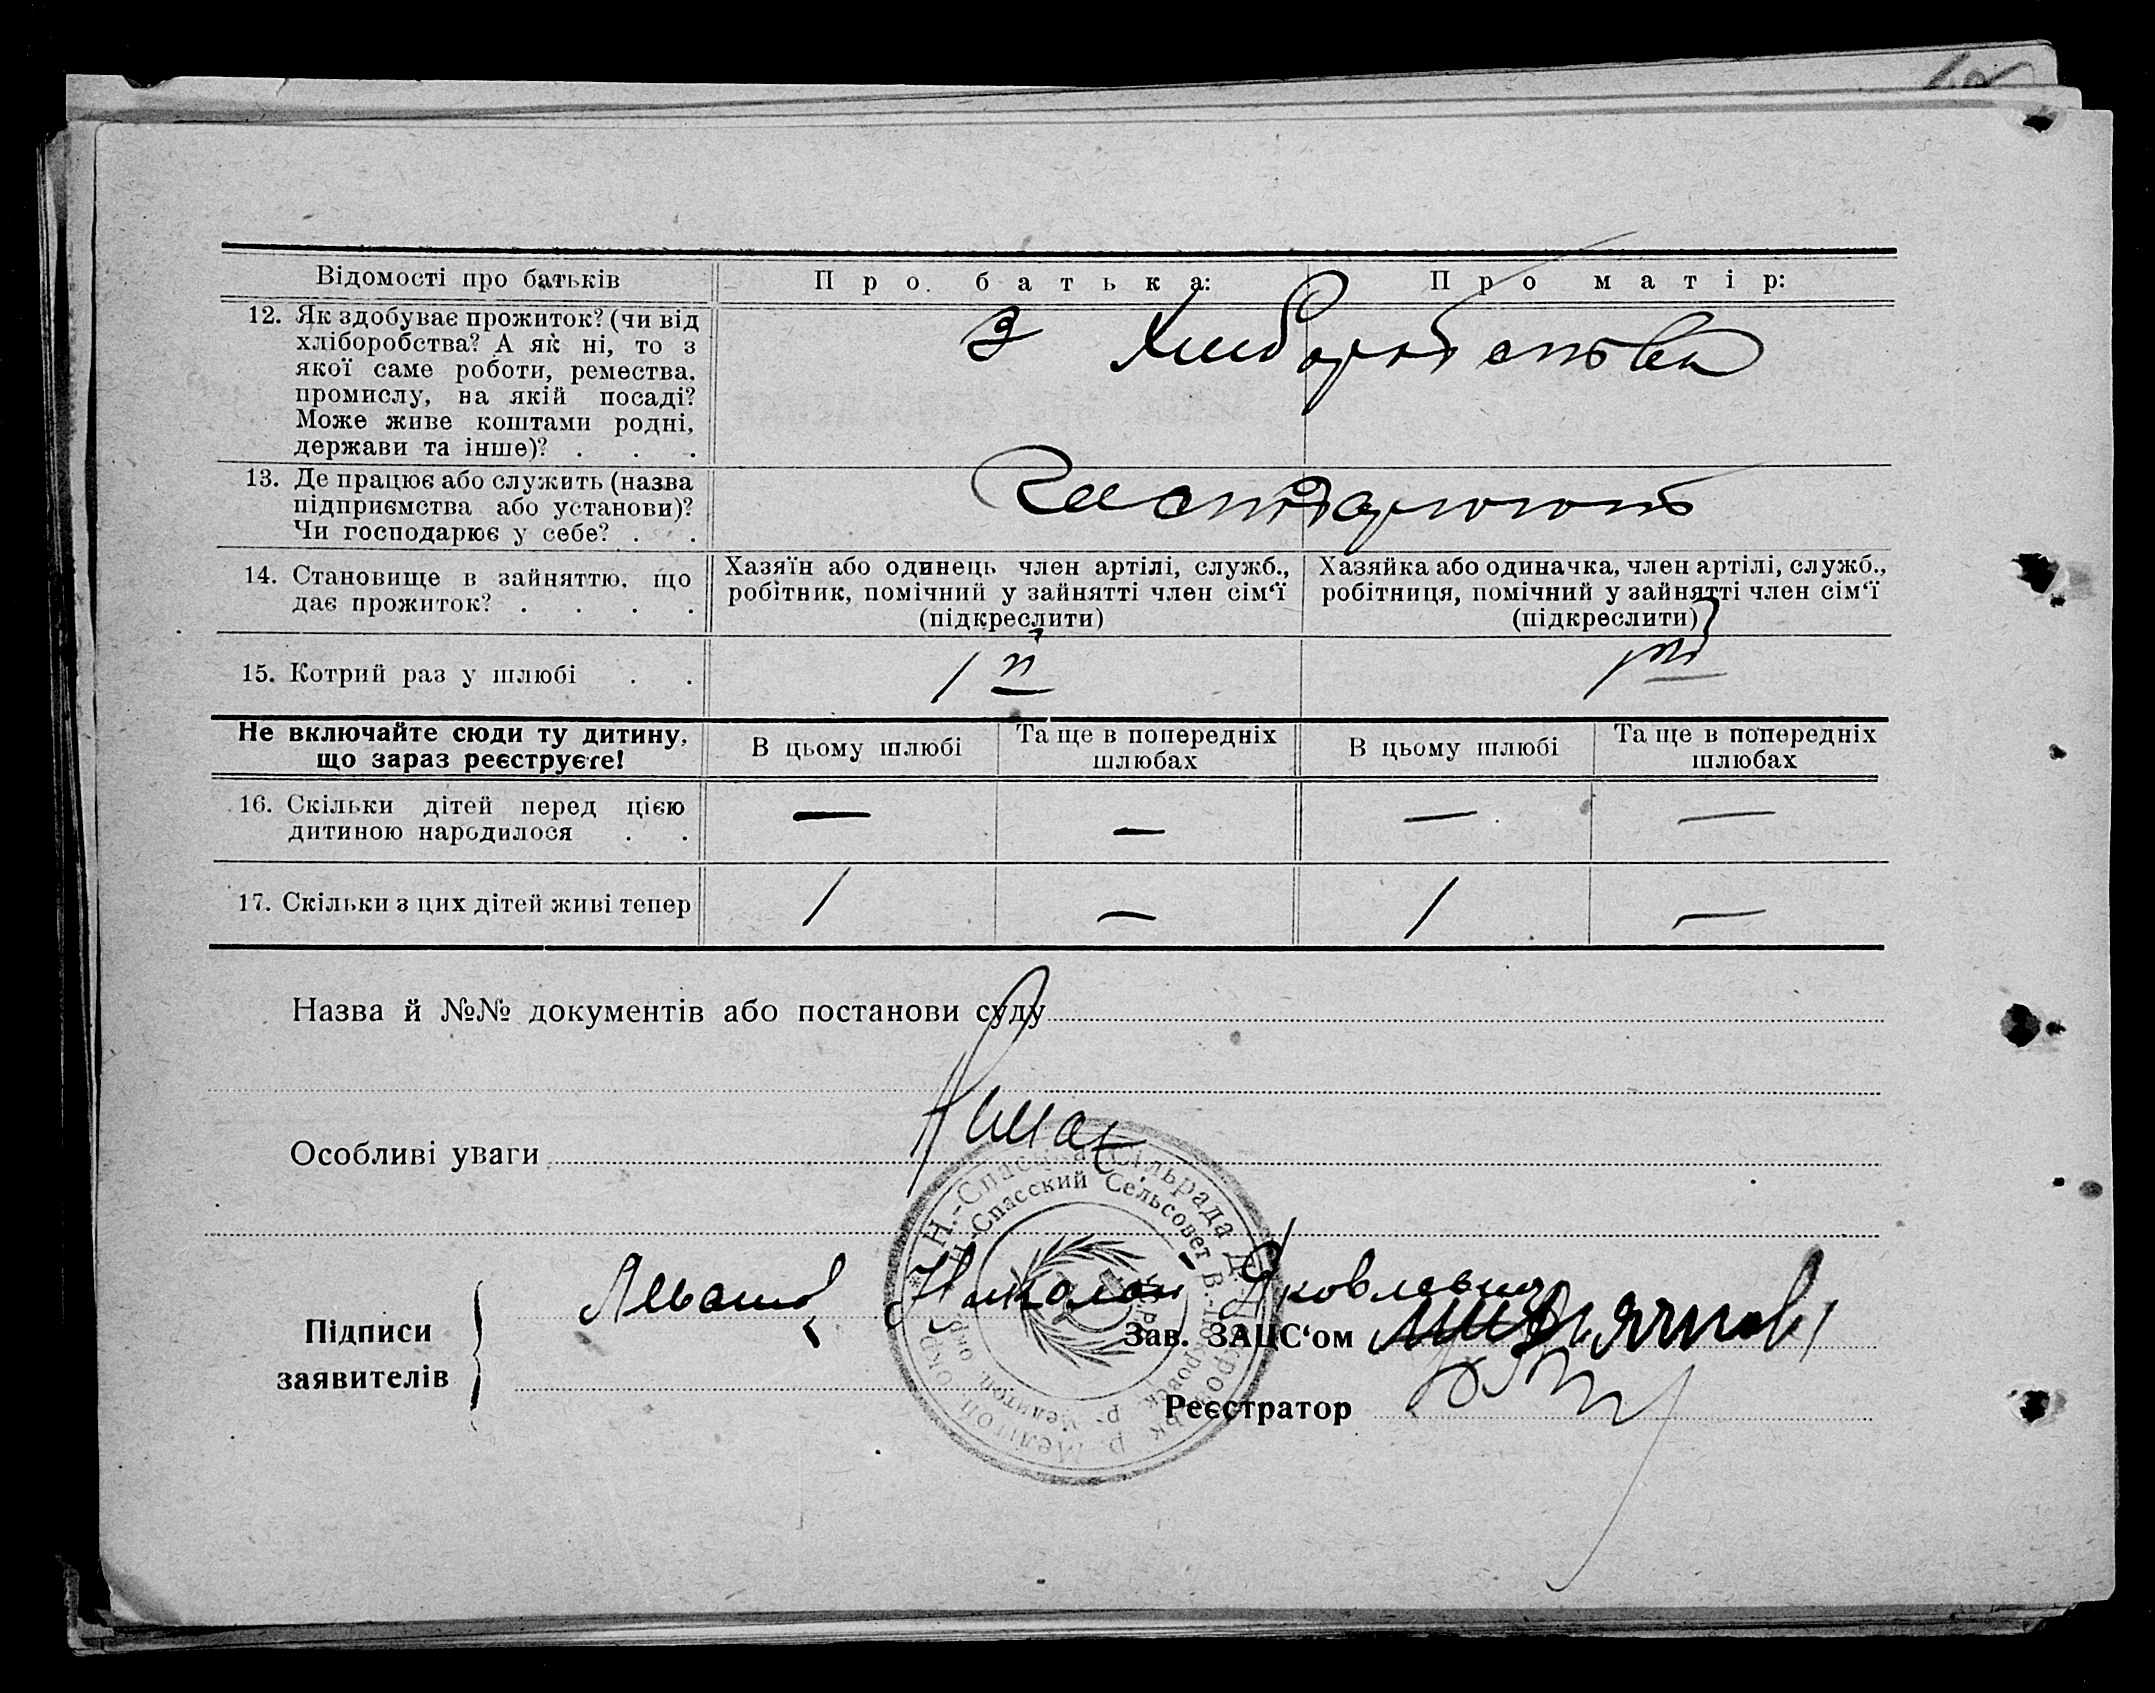 Відомості про батьків
Про батька:
Про матір:
12. Як здобуває прожиток? (чи від
хліборобства? А як ні, то з
якої саме роботи, ремества,
промислу, на якій посаді?
Може живе коштами родні,
держави та інше)? . . .
З Хліборобства
13. Де працює або служить (назва
підприємства або установи)?
Чи господарює у себе? . .
14. Становище в зайняттю, що
дає прожиток? . . . .
Хазяїн або одинець член артілі, служб.,
робітник, помічний у зайнятті член сім‘ї
(підкреслити)
Хазяйка або одиначка, член артілі, служб.,
робітниця, помічний у зайнятті член сім‘ї
(підкреслити)
15. Котрий раз у шлюбі . .
1й
1й
Не включайте сюди ту дитину,
що зараз реєструєте!
В цьому шлюбі
Та ще в попередніх
шлюбах
В цьому шлюбі
Та ще в попередніх
шлюбах
16. Скільки дітей перед цією
дитиною народилося . .
— — — —
17. Скільки з цих дітей живі тепер
1 — 1 —
Назва й №№ документів або постанови суду
Немає
Особливі уваги
Н.-Спаська Сільрада
Н-Спасский Сельсовет В.-Покровск. р. Мелитоп. окр.
Підписи
заявителів
Николай Яковлевич
Зав. ЗАЦС‘ом
Реєстратор